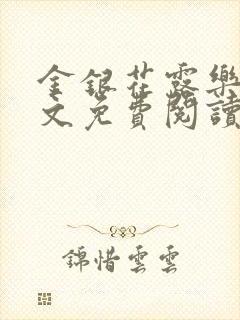 金銀花露樂
文免費閱讀
錦惜雲雲